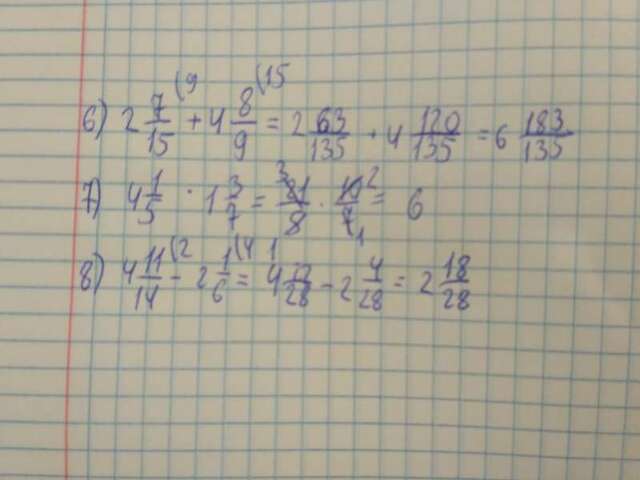 6) 2 7/15 (9 + 4 8/9 (15 = 2 63/135 + 4 120/135 = 6 183/135
7) 4 1/5 · 1 3/7 = 21/5 · 10/7 = 6
8) 4 11/14 (2 - 2 1/6 (4 = 4 22/28 - 2 4/28 = 2 18/28